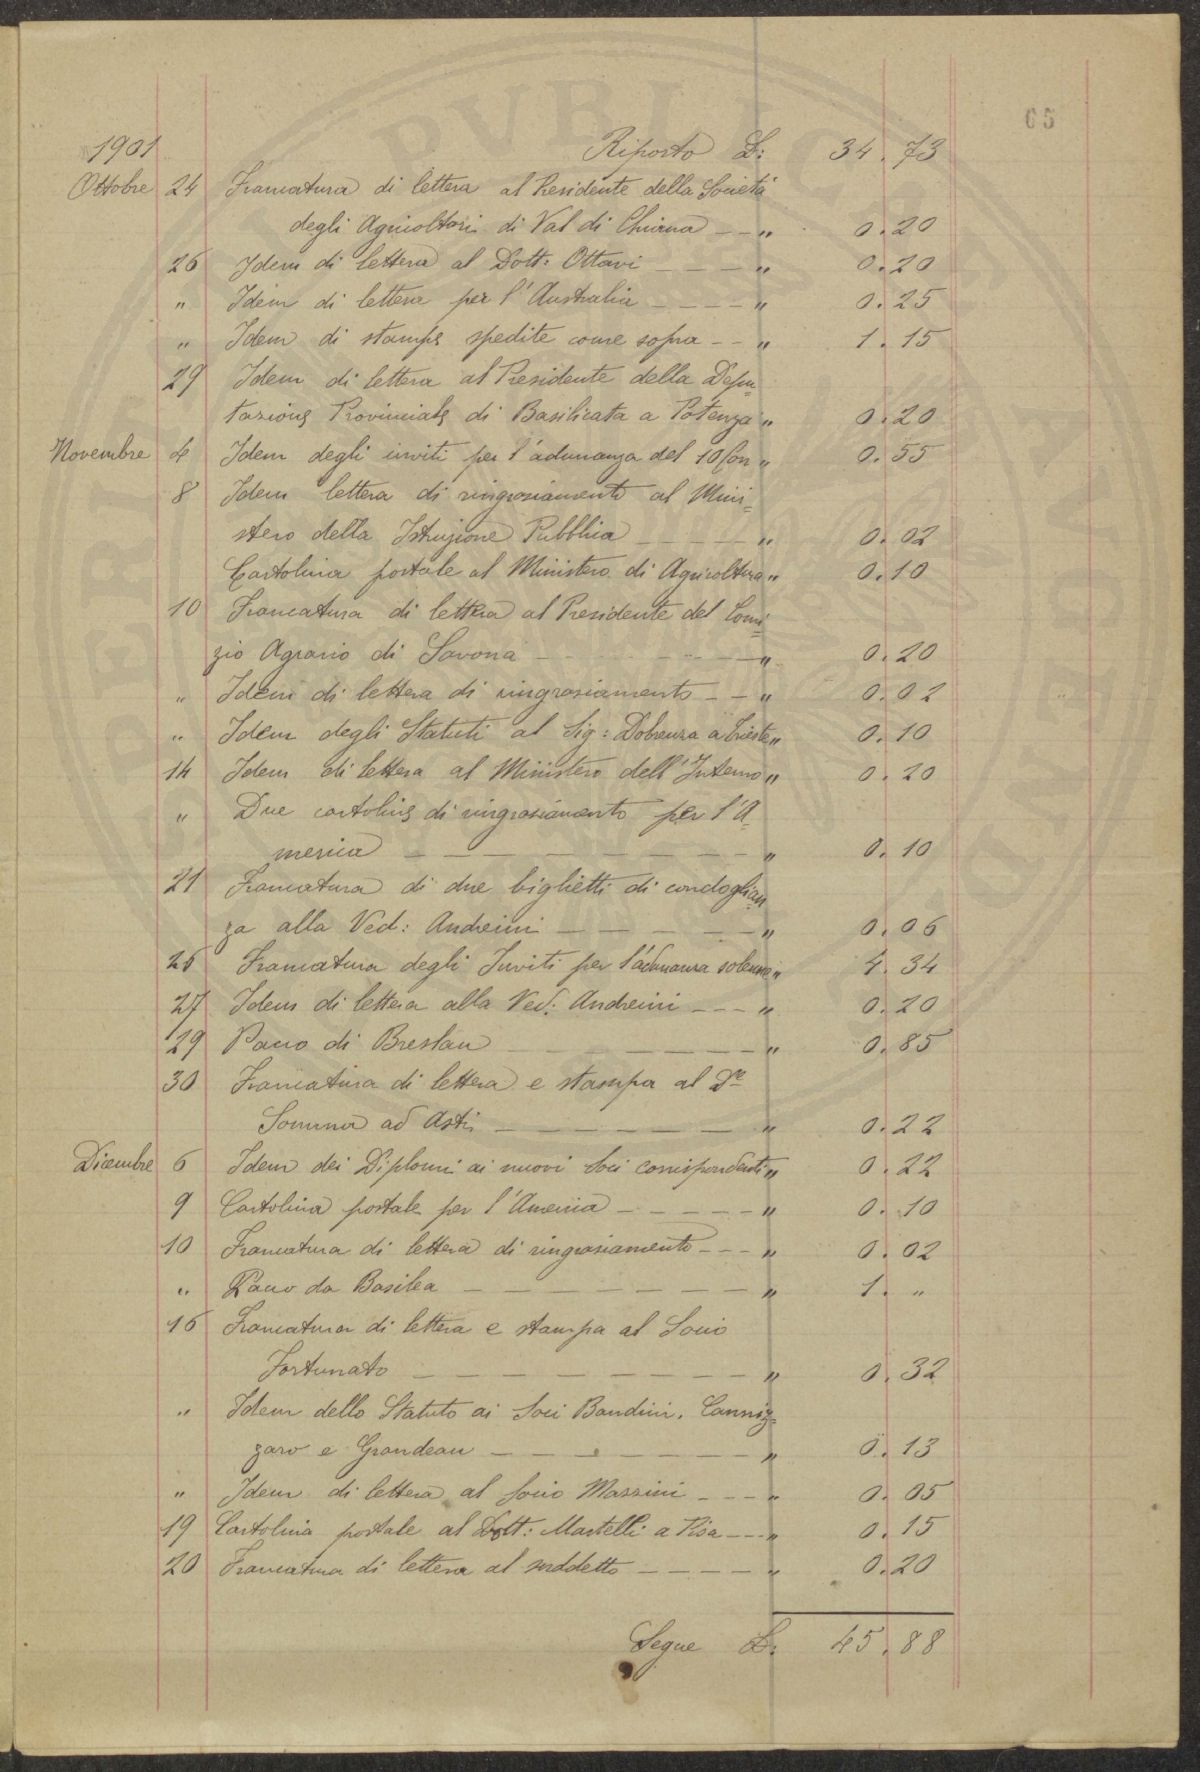 65
1901 Riporto L: 34.73
Ottobre 24 Francatura di lettera al Presidente della Società
degli Agricoltori di Val di Chiana " 0.20
26 Idem di lettera al Dott: Ottavi " 0.20
" Idem di lettera per l'Australia " 0.25
" Idem di stampe spedite come sopra " 1.15
29 Idem di lettera al Presidente della Depu
tazione Provinciale di Basilicata a Potenza " 0.20
Novembre 4 Idem degli inviti per l'adunanza del 10 Con " 0.55
8 Idem lettera di ringraziamento al Mini=
stero della Istruzione Pubblica " 0.02
Cartolina postale al Ministero di Agricoltura " 0.10
10 Francatura di lettera al Presidente del Comi=
zio Agrario di Savona " 0.20
" Idem di lettera di ringraziamento " 0.02
" Idem degli Statuti al Sig: a Trieste " 0.10
14 Idem di lettera al Ministero dell'Interno " 0.20
" Due cartoline di ringraziamento per l'A=
merica " 0.10
21 Francatura di due biglietti di condoglian
za alla Ved: Andreini " 0.06
25 Francatura degli Inviti per l'adunanza solenne " 4.34
27 Idem di lettera alla Ved: Andreini " 0.20
29 Pacco di Breslau " 0.85
30 Francatura di lettera e stampa al Dre
Somma ad Asti " 0.22
Dicembre 6 Idem dei Diplomi ai nuovi Soci corrispondenti " 0.22
9 Cartolina postale per l'America " 0.10
10 Francatura di lettera di ringraziamento " 0.02
" Pacco da Basilea " 1. "
16 Francatura di lettera e stampa al Socio
Fortunato " 0.32
" Idem dello Statuto ai Soci Bandini, Canniz=
zaro e Grandeau " 0.13
" Idem di lettera al Socio Massini " 0.05
19 Cartolina postale al Dott: Martelli a Pisa " 0.15
20 Francatura di lettera al suddetto " 0.20
Segue L: 45.88